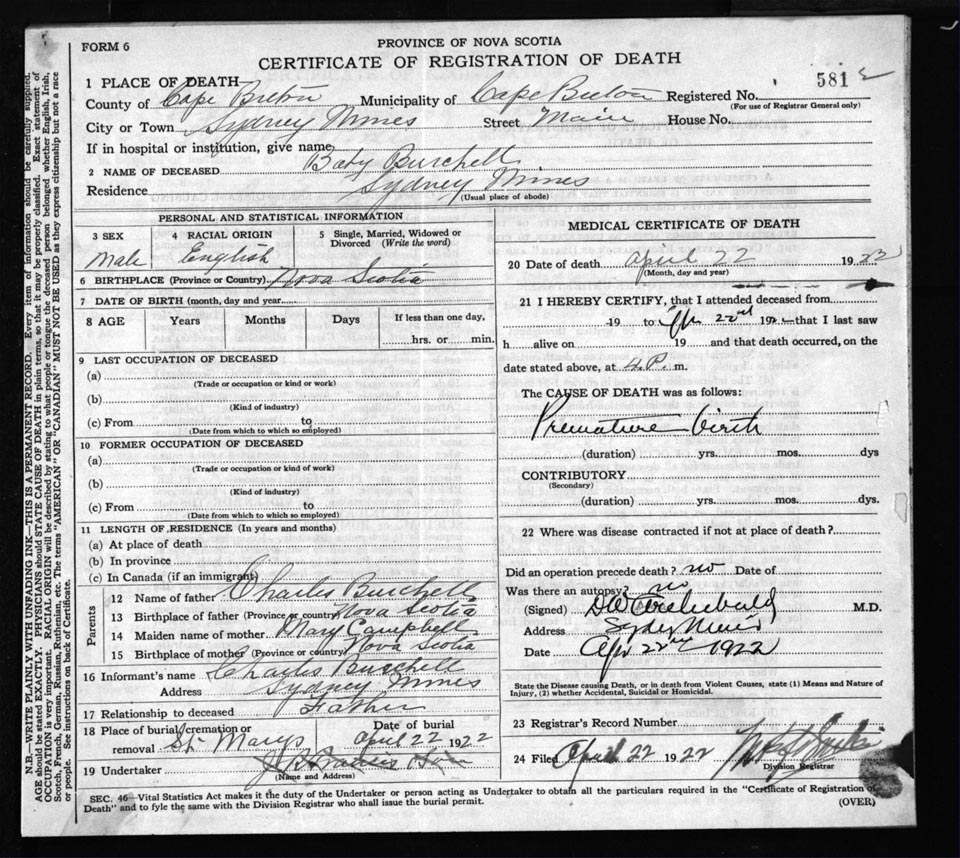 FORM 6
PROVINCE OF NOVA SCOTIA
CERTIFICATE OF REGISTRATION OF DEATH
581
1 PLACE OF DEATH
County of Cape Breton Municipality of Cape Breton Registered No.
(For use of Registrar General only)
City or Town Sydney Mines Street Main House No.
If in hospital or institution, give name
2 NAME OF DECEASED Baby Burchell
Residence Sydney Mines
(Usual place of abode)
PERSONAL AND STATISTICAL INFORMATION
3 SEX
Male
4 RACIAL ORIGIN
English
5 Single, Married, Widowed or Divorced (Write the word)
6 BIRTHPLACE (Province or Country) Nova Scotia
7 DATE OF BIRTH (month, day and year)
8 AGE Years Months Days If less than one day,
hrs. or min.
9 LAST OCCUPATION OF DECEASED
(a)
(Trade or occupation or kind or work)
(b)
(Kind of industry)
(c) From to
(Date from which to which so employed)
10 FORMER OCCUPATION OF DECEASED
(a)
(Trade or occupation or kind of work)
(b)
(Kind of industry)
(c) From to
(Date from which to which so employed)
11 LENGTH OF RESIDENCE (In years and months)
(a) At place of death
(b) In province
(c) In Canada (if an immigrant)
Parents
12 Name of father Charles Burchell
13 Birthplace of father (Province or country) Nova Scotia
14 Maiden name of mother Mary Campbell
15 Birthplace of mother (Province or country) Nova Scotia
16 Informant's name Charles Burchell
Address Sydney Mines
17 Relationship to deceased Father
18 Place of burial, cremation or removal St Marys
Date of burial
April 22 1922
19 Undertaker
(Name and Address)
MEDICAL CERTIFICATE OF DEATH
20 Date of death April 22 1922
(Month, day and year)
21 I HEREBY CERTIFY, that I attended deceased from
19 to Apr 22nd 192 that I last saw
h alive on 19 and that death occurred, on the
date stated above, at 4 P. m.
The CAUSE OF DEATH was as follows:
Premature birth
(duration) yrs. mos. dys
CONTRIBUTORY
(Secondary)
(duration) yrs. mos. dys.
22 Where was disease contracted if not at place of death?
Did an operation precede death? no Date of
Was there an autopsy? no
(Signed) Archibald M.D.
Address Sydney Mines
Date Apr 22nd 1922
State the Disease causing Death, or in death from Violent Causes, state (1) Means and Nature of
Injury, (2) whether Accidental, Suicidal or Homicidal.
23 Registrar's Record Number
24 Filed April 22 1922
Division Registrar
SEC. 46—Vital Statistics Act makes it the duty of the Undertaker or person acting as Undertaker to obtain all the particulars required in the "Certificate of Registration of
Death" and to fyle the same with the Division Registrar who shall issue the burial permit. (OVER)
N.B.—WRITE PLAINLY WITH UNFADING INK—THIS IS A PERMANENT RECORD. Every item of information should be carefully supplied.
AGE should be stated EXACTLY. PHYSICIANS should STATE CAUSE OF DEATH in plain terms, so that it may be properly classified. Exact statement of
OCCUPATION is very important. RACIAL ORIGIN will be described by stating to what people or tongue the deceased person belonged whether English, Irish,
Scotch, French, German, Russian, Ruthenian, etc. The terms "AMERICAN" OR "CANADIAN" MUST NOT BE USED as they express citizenship but not a race
or people. See instructions on back of Certificate.